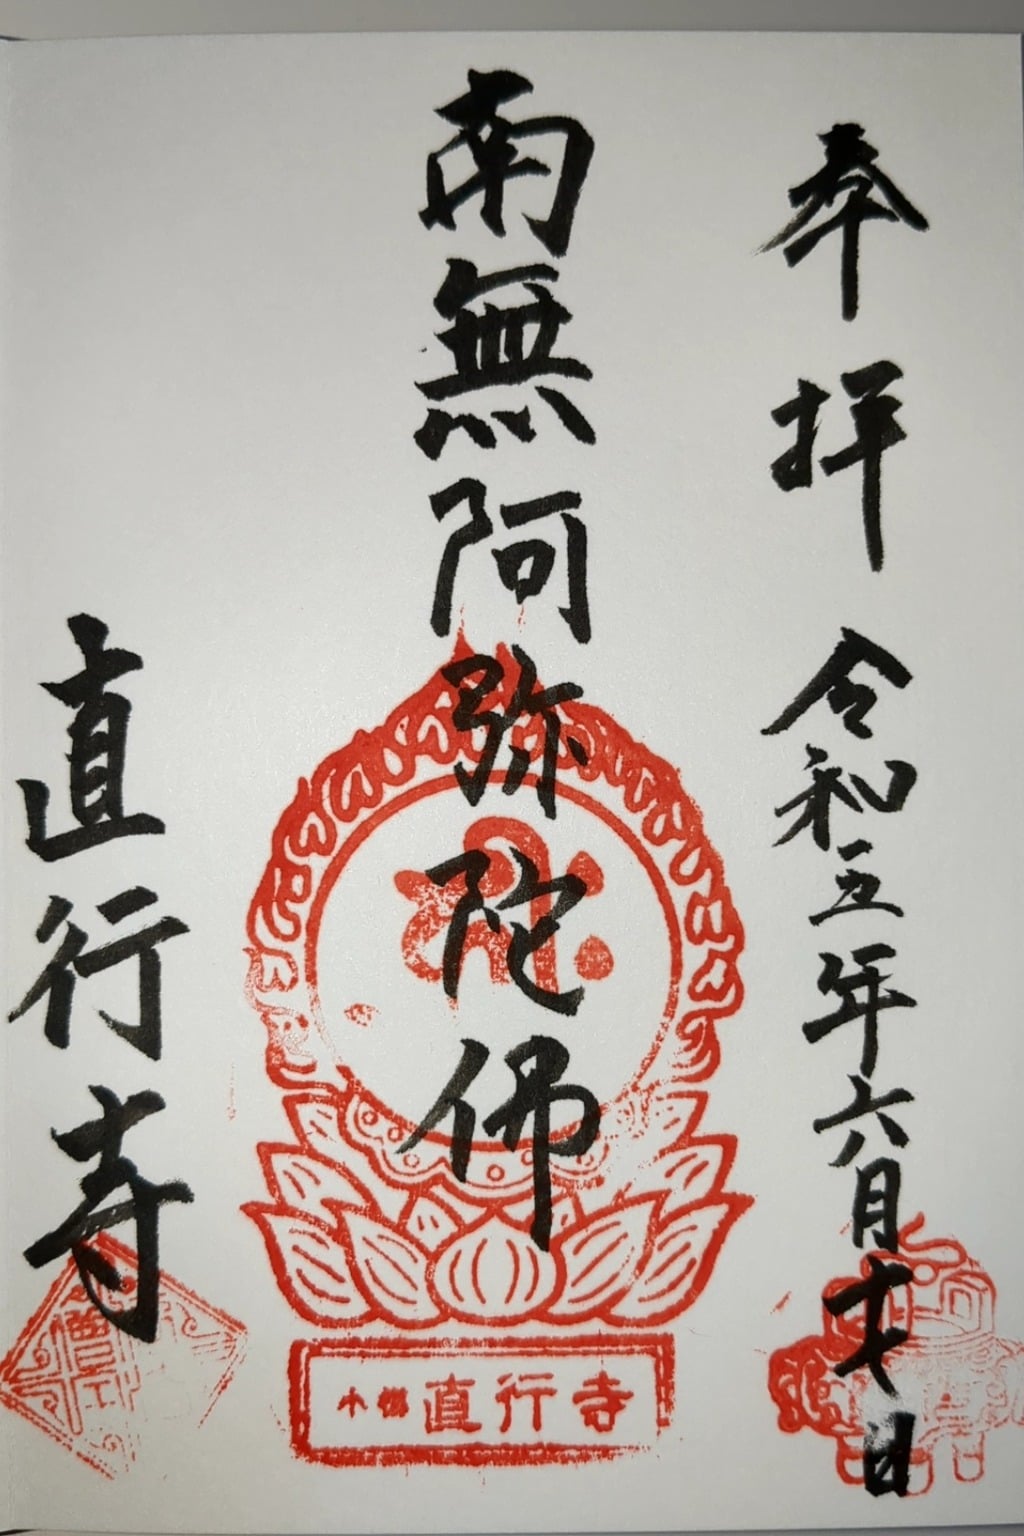 奉拝 令和五年六月十七日
南無阿弥陀佛
直行寺
直行寺